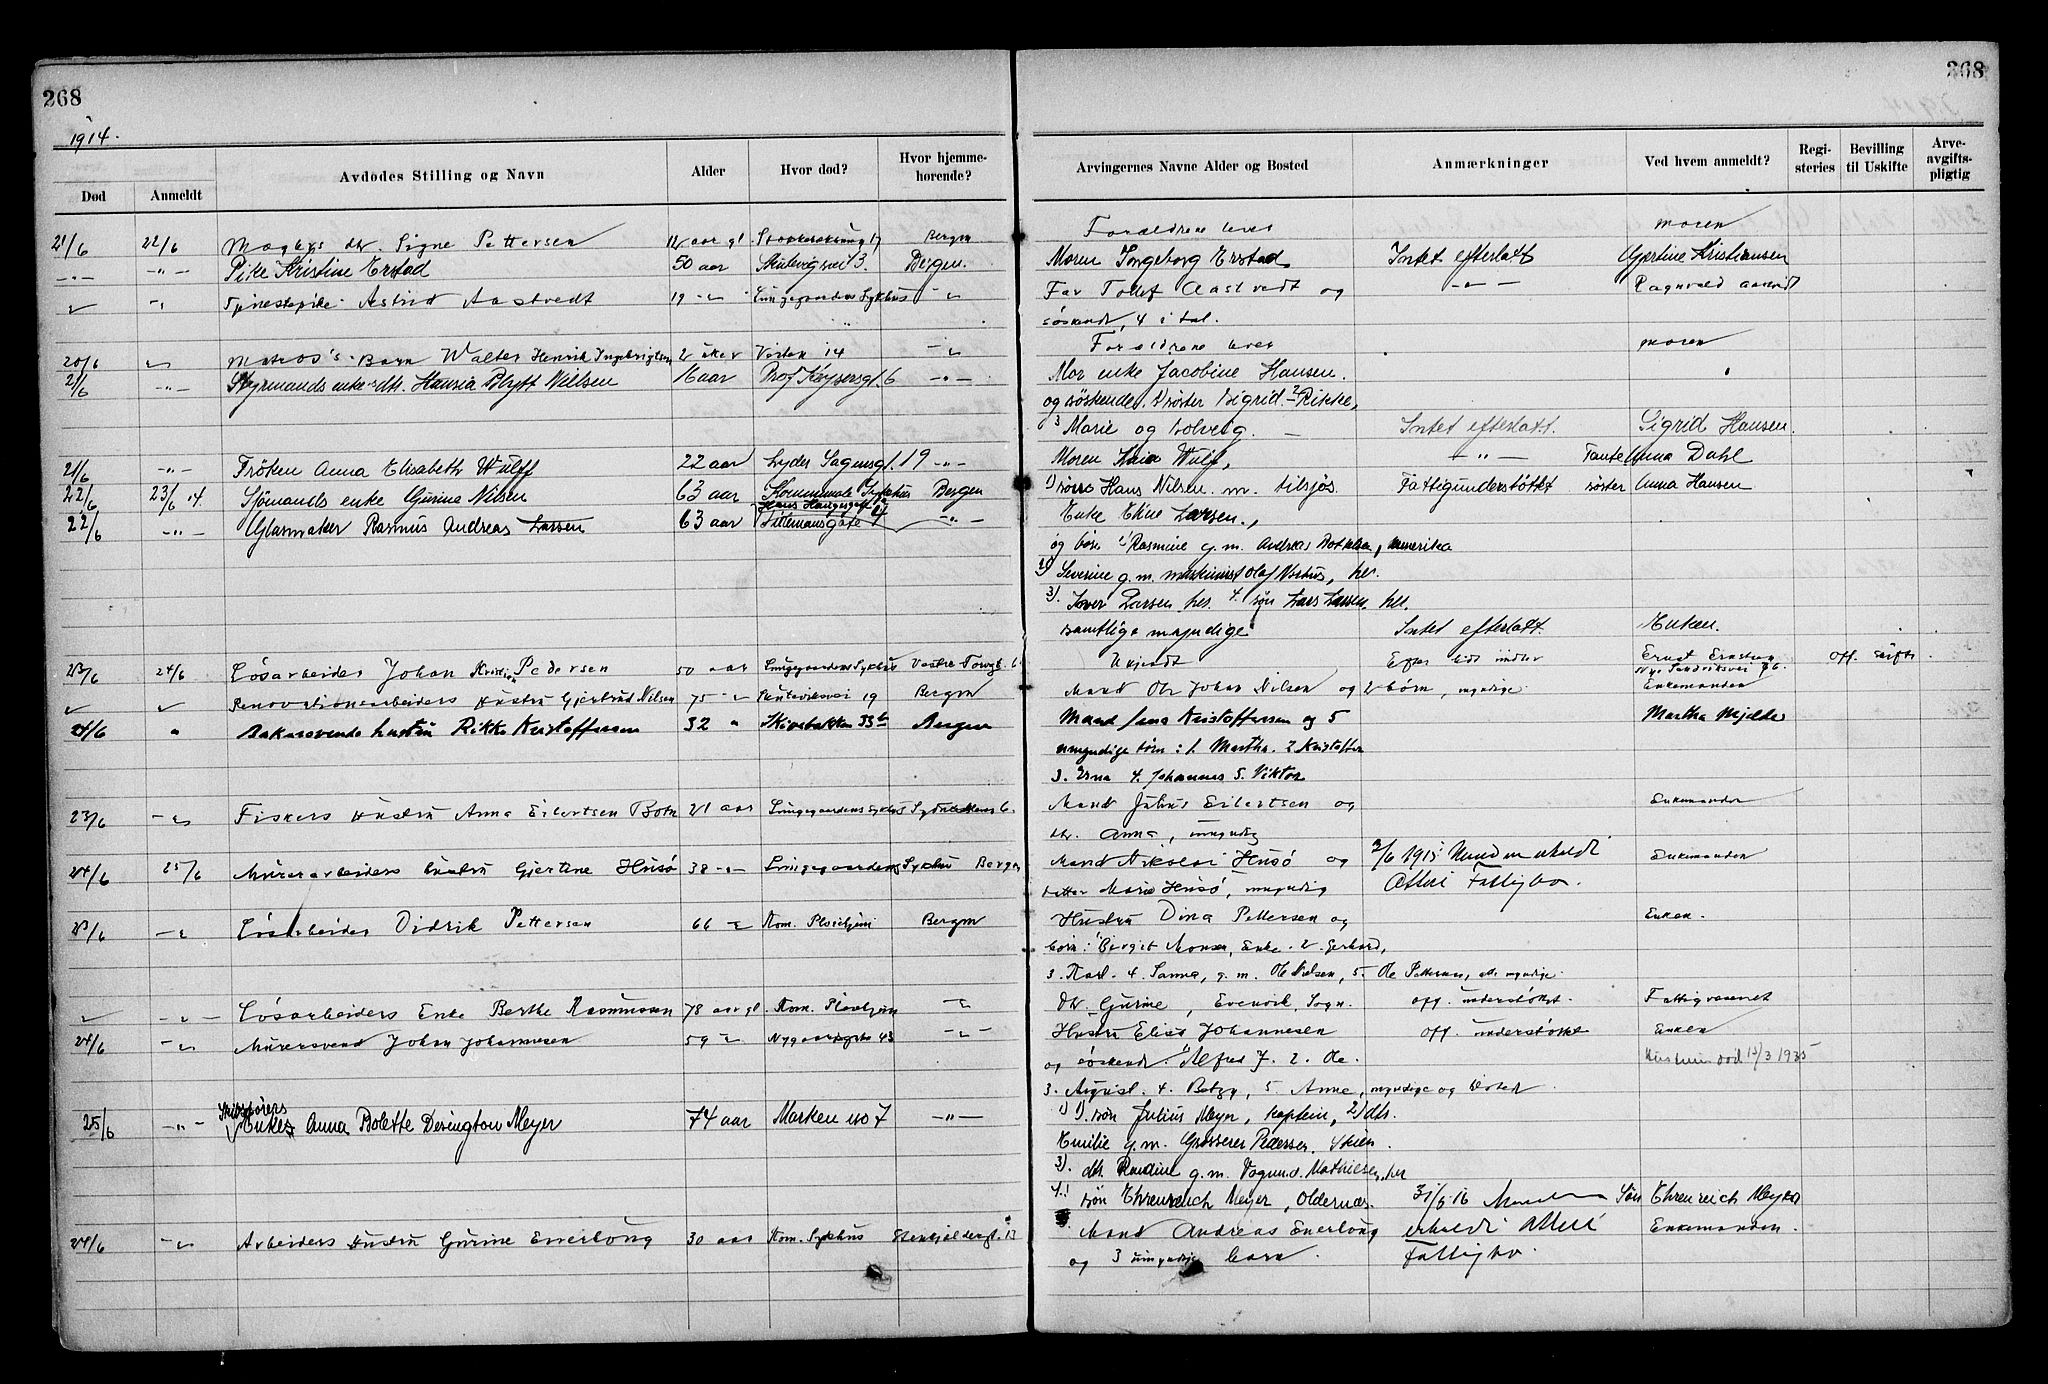 268
268
1914.
Død Anmeldt Avdødes Stilling og Navn Alder Hvor død? Hvor hjemme-hørende? Arvingernes Navne Alder og Bosted Anmærkninger Ved hvem anmeldt? Regi-steries Bevilling til Uskifte Arve-avgifts-pligtig
21/6 22/6 dtr. Signe Pettersen 17 Bergen Forældrene lever moren
-"- -"- Pike Kristine Erstad 50 aar Skutevigsvei 3. Bergen. Moren Ingeborg Erstad Intet efterlatt Gjertine Kristiansen
Tjenestepike Astrid Aastvedt 19 -"- Lungegaardens Sykhus -"- Far Tollef Aastvedt og -"- Ragnvald Aastvedt
søskende, 4 i tal.
20/6 -"- Matros's Barn Walter Henrik Ingebrigtsen 2 uker 14 -"- Forældrene lever moren
21/6 -"- Styrmands enkes dtr. Hansia Blytt Nielsen 16 aar Prof Keysersgt. 6 -"- Mor enke Jacobine Hansen.
og søskende. søster Sigrid. 2 Rikke,
3 Marie og Solveig. Intet efterlatt. Sigrid Hansen.
21/6 -"- Frøken Anna Elisabeth Wulff 22 aar Lyder Sagensgt. 19 -"- Moren Wulff, -"- Tante Anna Dahl
22/6 23/6 14. Sjømands enke Gurine Nilsen 63 aar Kommunale Sykehus Bergen 1) Hans Nilsen. m. tilsjøs. Fattigunderstøttet søster Anna Hansen
22/6 -"- Glasmaker Rasmus Andreas Larsen 63 aar Hans Haugesgate 4 -"- Enke Eline Larsen.,
og børn 1) Rasmine g.m. Andreas, Amerika
2) Severine g.m. maskinist Olaf, her.
3). Iver Larsen her. 4. søn Lars Larsen her.
samtlige myndige Intet efterlatt. Enken.
23/6 24/6 Løsarbeider Johan Kristian Pedersen 50 aar Lungegaardens Sykhus Vestre Torvgt. 6 Ukjendt Ernst Ernstsen off. skifte
Nye Sandviksvei 76.
Renovationsarbeiders Hustru Gjertrud Nilsen 75 -"- Skuteviksvei 19 Bergen Mand Ole Johan Nilsen og 2 børn, myndige Enkemanden
24/6 " Bakersvends hustru Rikke Kristoffersen 32 " Skivebakken 33b Bergen Mand Jens Kristoffersen og 5 Martha Mjelde
umyndige børn: 1. Martha. 2 Kristoffer
3. Erna 4. Johannes 5. Viktor
23/6 -"- Fiskers Hustru Anna Eilertsen Botn 21 aar Lungegaardens Sykhus 6. Mand Julius Eilertsen og Enkemanden
dtr. Anna, umyndig
24/6 25/6 Murerarbeiders hustru Gjertine Husø 38 -"- Lungegaardens Sykhus Bergen Mand Nikolai Husø og 2/6 1915 Manden erholdt Enkemanden
datter Marie Husø, umyndig Attest Fattigbo.
23/6 -"- Løsarbeider Didrik Pettersen 66 -"- Kom. Pleiehjem Bergen Hustru Dina Pettersen og Enken.
børn: 1) Berget Monsen, Enke. 2. Gerhard,
3. Karl. 4. Sanna, g.m. Ole Nielsen, 5. Ole Pettersen, alle myndige.
-"- Løsarbeiders Enke Berthe Rasmussen 78 aar gl. Kom. Pleiehjem -"- Dtr. Gurine, Evenvik, Sogn. off. understøttet. Fattigvæsenet
24/6 -"- Murersvend Johan Johannesen 59 -"- Nygaardsgaten 43 -"- Hustru Elise Johannesen off. understøttet Enken
og søskende. 1) Alfred J. 2. Ole. Hustruen død 15/3 1935
3. August. 4. Betzy, 5 Anne, myndige og bosat
25/6 -"- Skibsførers Enke Anna Bolette Devington Meyer 74 aar Marken no 7 -"- 1) søn Julius Meyer, kaptein, 2) dtr.
Emilie g.m. Grosserer Pedersen, Skien.
3). dtr. g.m. Mathiesen, her
4.) søn Ehrenreich Meyer, Oldernæs. 31/5 16 Manden Søn Ehrenreich Meyer
24/6 -"- Arbeiders Hustru Gurine Enerhoug 30 aar Kom. Sykhus Stenkjeldergt. 13 Mand Andreas Enerhoug erholdt Attest Enkemanden.
og 3 umyndige barn. Fattigbo.